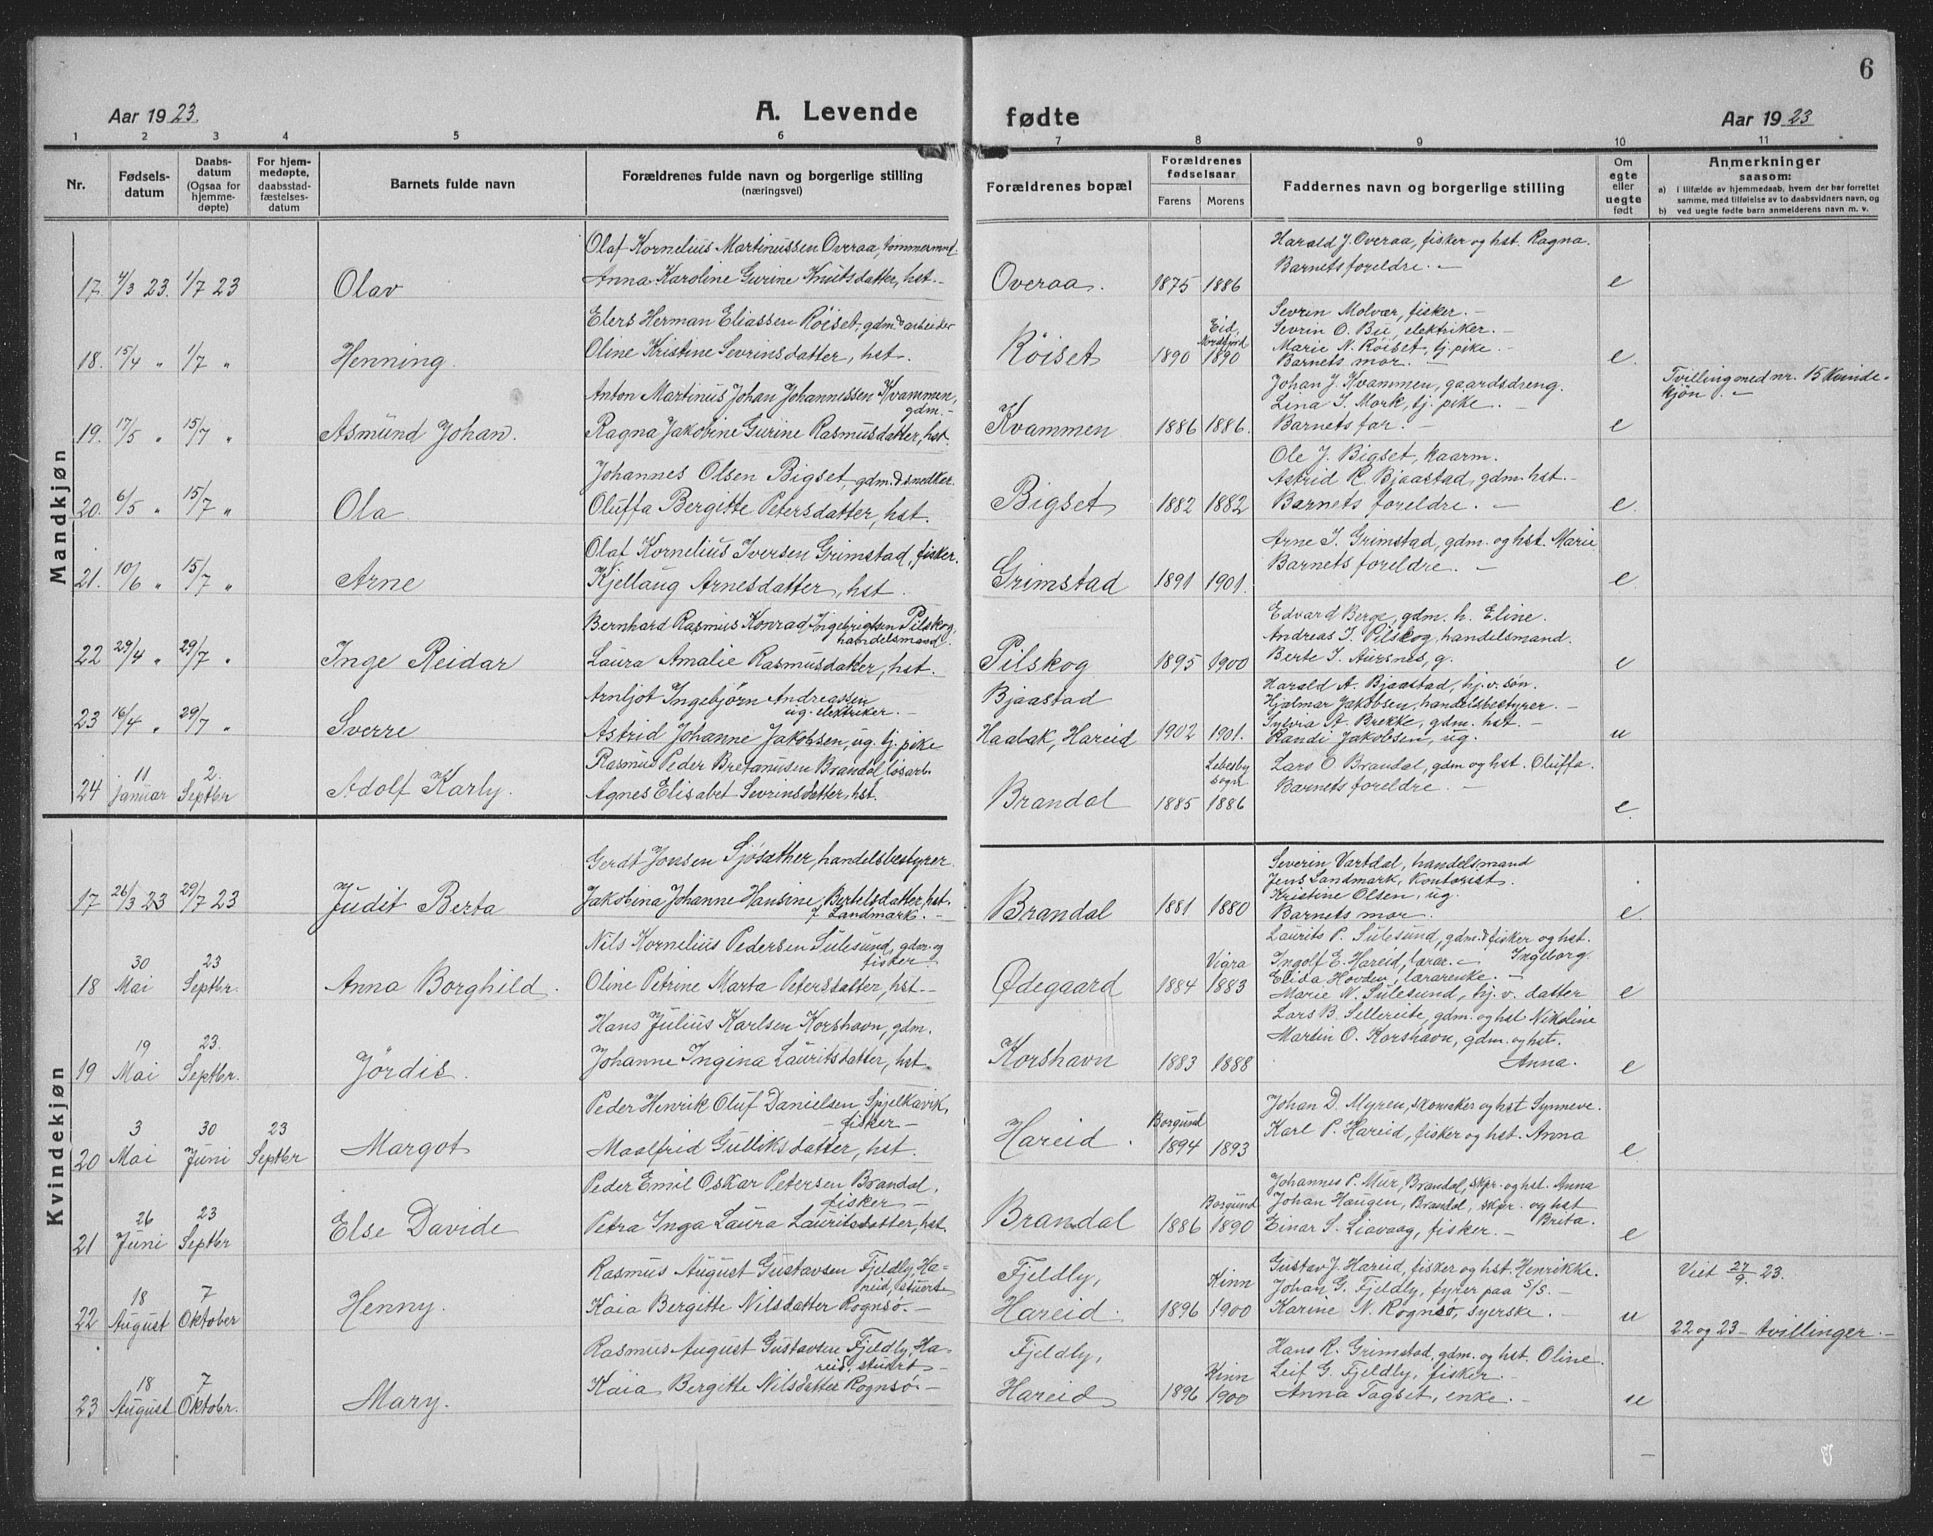 6
Aar 1923.
A. Levende fødte
Aar 1923
1 2 3 4 5 6 7 8 9 10 11
Nr.
Fødsels-
datum
Daabs-
datum
(Ogsaa for
hjemme-
døpte)
For hjem-
medøpte,
daabsstad-
fæstelses-
datum
Barnets fulde navn
Forældrenes fulde navn og borgerlige stilling
(næringsvei)
Forældrenes bopæl
Forældrenes
fødselsaar
Farens Morens
Faddernes navn og borgerlige stilling
Om
egte
eller
uegte
født
Anmerkninger
saasom:
a) i tilfælde av hjemmedaab, hvem der har forrettet
samme, med tilføielse av to daabsvidners navn, og
b) ved uegte fødte barn anmelderens navn m. v.
Mandkjøn
17. 4/3 23. 1/7 23 Olav
Olaf Kornelius Martinussen Overaa, tømmermnd.
Anna Karoline Gurine Knutsdatter, hst.
Overaa. 1875 1886
Harald J. Overaa, fisker og hst. Ragna.
Barnets foreldre. —
e
18. 15/4 " 1/7 " Henning.
Elers Herman Eliassen Röiset, gdm. & arbeider
Oline Kristine Sevrinsdatter, hst.
Röiset 1890 Eid, Nordfjord 1890
Sevrin Molvær, fisker. —
Sevrin O. Bu, elektriker. —
Marie N. Röiset, tj. pike. —
Barnets mor. —
e.
19. 17/5 " 15/7 " Asmund Johan.
Anton Martinus Johan Johannessen Kvammen,
gdm. —
Ragna Jakobine Gurine Rasmusdatter, hst.
Kvammen 1886 1886.
Johan J. Kvammen, gaardsdreng.
Lina I. Mork, tj. pike. —
Barnets far. —
e
Tvilling med nr. 15 kvinde-
kjøn. —
20. 6/5 " 15/7 " Ola
Johannes Olsen Bigset, gdm. & snedker.
Oluffa Bergitte Petersdatter, hst.
Bigset 1882 1882
Ole J. Bigset, kaarm.
Astrid R. Bjaastad, gdm. hst. —
Barnets foreldre. —
e.
21. 10/6 " 15/7 " Arne
Olaf Kornelius Iversen Grimstad, fisker.
Kjellaug Arnesdatter, hst.
Grimstad 1891 1901.
Arne I. Grimstad, gdm. og hst. Marie
Barnets foreldre. —
e
22 29/4 " 29/7 " Inge Reidar
Bernhard Rasmus Konrad Ingebrigtsen Pilskog,
handelsmand.
Laura Amalie Rasmusdatter, hst.
Pilskog 1895 1900
Edvard Berge, gdm. h. Eline.
Andreas I. Pilskog, handelsmand.
Berte I. Aursnes, g.
e
23 16/4 " 29/7 " Sverre
Arnljot Ingebjørn Andreassen
ug. elektriker. —
Astrid Johanne Jakobsen, ug. tj. pike
Bjaastad
Haabak, Hareid 1902 1901.
Harald A. Bjaastad, hj. v. søn.
Hjalmar Jakobsen, handelsbestyrer. —
Sylvia A. Brekke, gdm. hst. —
Randi Jakobsen, ug.
u
24 11 januar 2. Septbr Adolf Karly.
Rasmus Peder Bretanusen Brandal løsarb.
Agnes Elisabet Sevrinsdatter, hst.
Brandal 1885 Lebesby sogn 1886
Lars O Brandal, gdm og hst. Oluffa.
Barnets foreldre. —
e.
Kvindekjøn
17 26/3 23 29/7 23 Judit Berta
Gerdt Jonsen Sjösæther, handelsbestyrer.
Jakobina Johanne Hansine Bertelsdatter, hst.
f. Landmark. —
Brandal 1881 1880
Severin Vartdal, handelsmand
Jens Landmark, kontorist.
Kristine Olsen, ug.
Barnets mor.
e.
18 30 Mai 23 Septbr. Anna Borghild.
Nils Kornelius Pedersen Sulesund, gdm. og
fisker
Oline Petrine Marta Petersdatter, hst. —
Ødegaard 1884 Vigra 1883
Laurits P. Sulesund, gdm. & fisker og hst.
Ingolf E. Hareid, lærar. — Ingeborg.
Elida Hovden, lærarenke. —
Marie N. Sulesund, hj. v. datter
e
19 19 Mai 23. Septbr. Jördis.
Hans Julius Karlsen Korshavn, gdm.
Johanne Ingina Lauritsdatter, hst.
Korshavn 1883 1888
Lars B. Sellereite, gdm. og hst Nikoline
Martin O. Korshavn, gdm. og hst.
Anna.
e
20 3 Mai 30 Juni 23 Septbr Margot
Peder Henrik Oluf Danielsen Spjelkavik,
— fisker —
Maalfrid Gulliksdatter, hst.
Hareid. Borgund 1894 1893
Johan D. Myren, skomaker og hst Synneve.
Karl P. Hareid, fisker og hst. Anna
e.
21 26 Juni 23 Septbr Else Davide
Peder Emil Oskar Petersen Brandal.
fisker —
Petra Inga Laura Lauritsdatter, hst
Brandal 1886 Borgund 1890
Johannes P. Mur, Brandal, skpr. og hst. Anna
Johan Haugen, Brandal, skpr. og hst
Brita.
Einar S. Liavaag, fisker. —
e
22 18 August 7 Oktober Henny.
Rasmus August Gustavsen Fjeldly, Ha-
reid, stuert
Kaia Bergitte Nilsdatter Rognsö. —
Fjeldly,
Hareid. 1896 Kinn 1900
Gustav J. Hareid, fisker og hst. Henrikke.
Johan G. Fjeldly, fyrer paa S/S. —
Karine N. Rognsö, syerske. —
u
Viet 27/9. 23.
22 og 23 — tvillinger. —
23 18 August 7 Oktobr. Mary.
Rasmus August Gustavsen Fjeldly, Ha-
reid, stuert —
Kaia Bergitte Nilsdatter Rognsö —
Fjeldly,
Hareid 1896 Kinn 1900
Hans R. Grimstad, gdm. og hst. Oline.
Leif G. Fjeldly, fisker —
Anna Tagset, enke. —
u